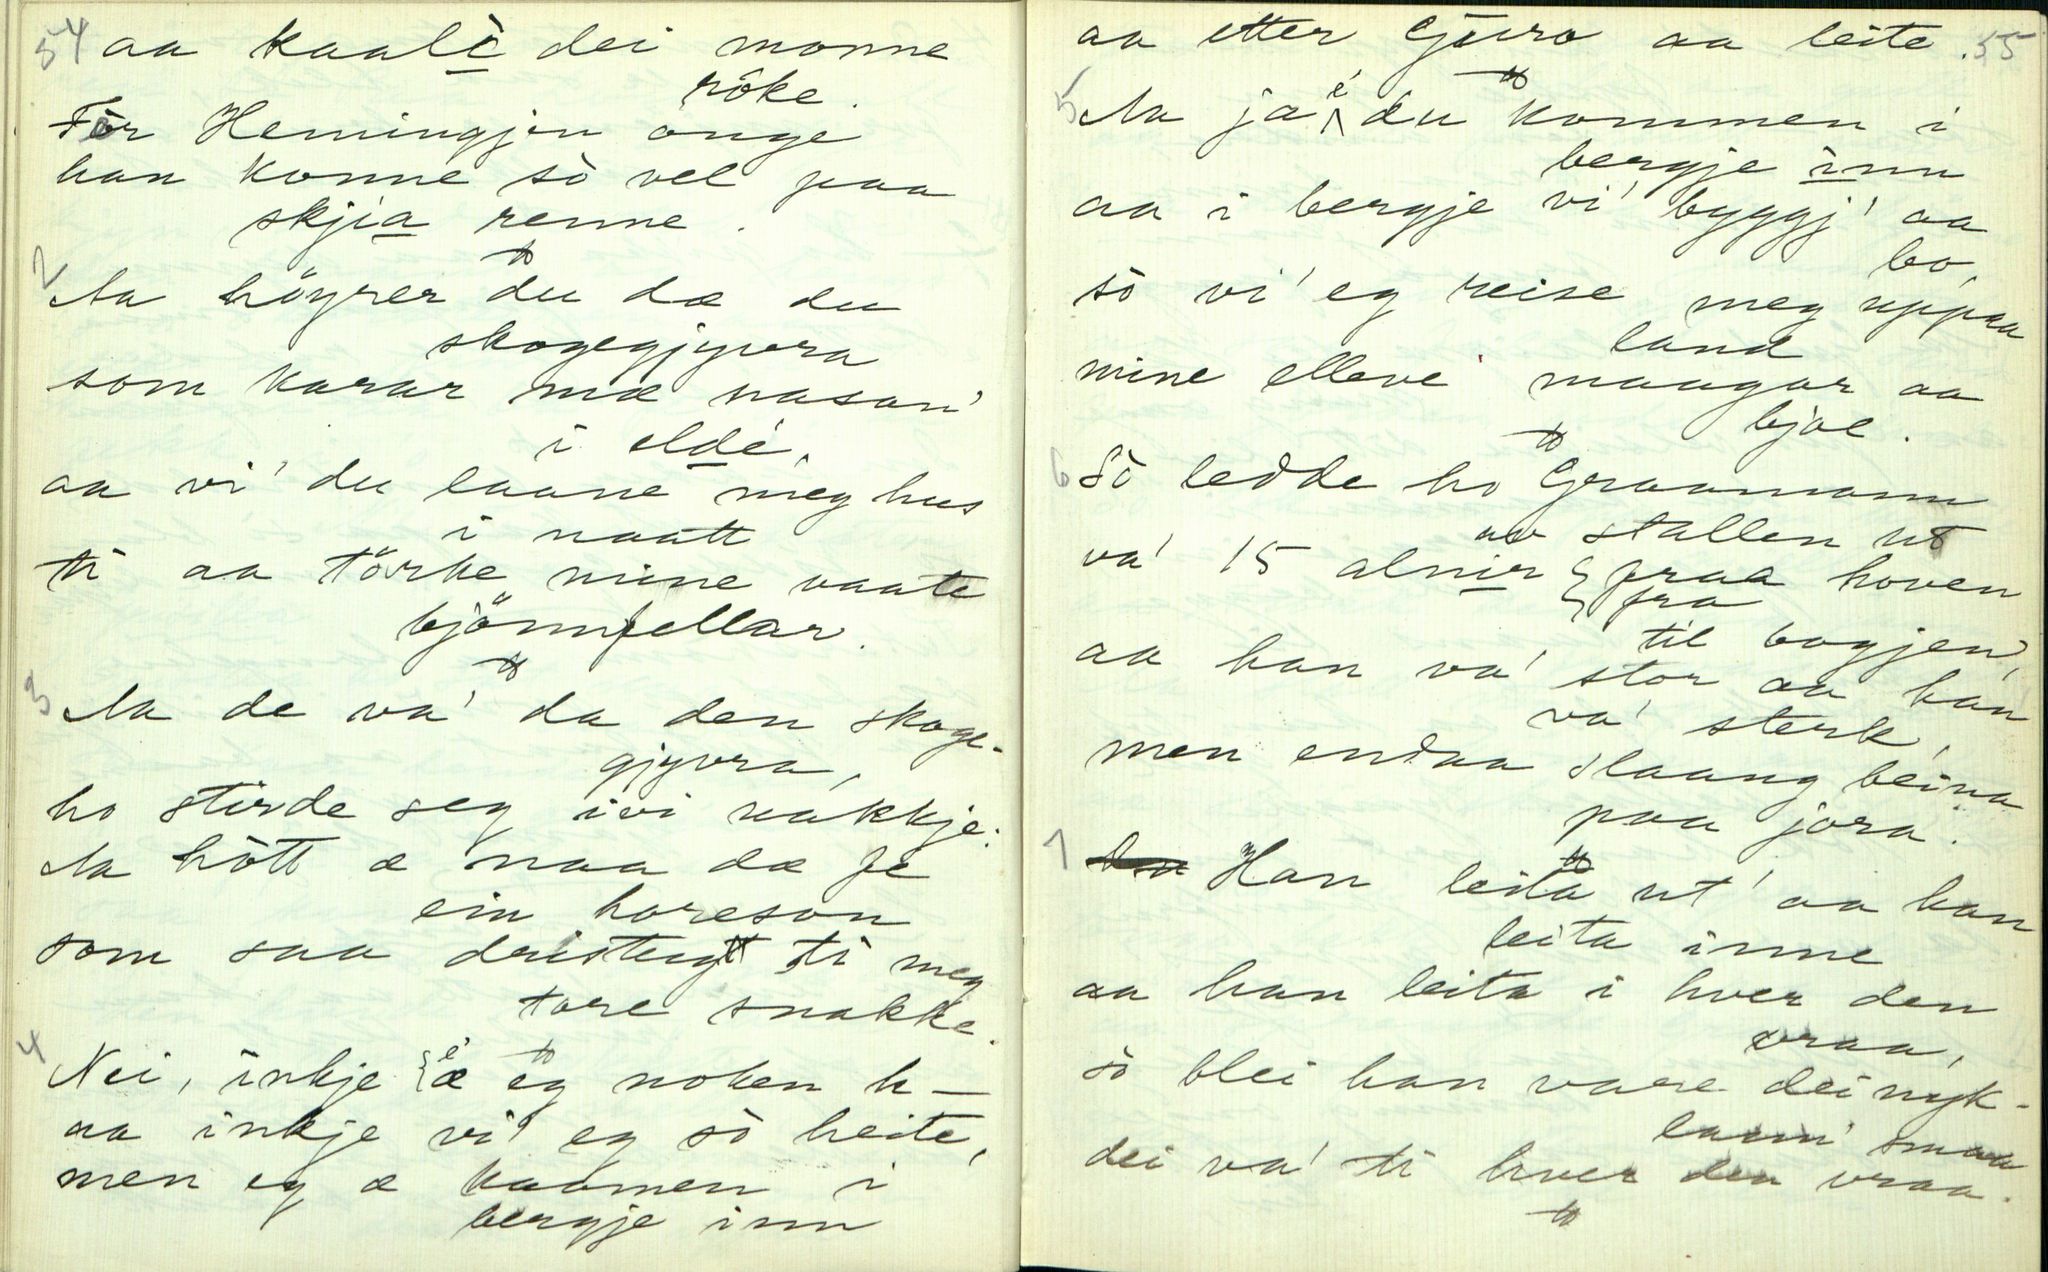 54 aa kaalè dei monne
röke.
För Hemingjen onge
han konne sò vel paa
skjia renne.
2 Aa höyrer du dæ du
skogegjyvra
som karar mæ nasan'
i eldé,
aa vi' du laane meg hus
i naatt
ti aa törke mine vaate
bjönnfellar.
3 Aa de va' da den skoge-
gjyvra,
ho stirde seg ivi nakkje:
Aa hòtt æ naa dæ fe
ein horeson
som saa dristugt ti meg
tore snakke.
4 Nei, inkje æ eg noken h—
é
aa inkje vi' eg sò heite,
men eg æ kaamen i
bergje inn
aa etter Gjuro aa leite. 55
5 Aa ja é du kommen i
bergje inn
aa i bergje vi' byggj' aa
bo,
sò vi' eg reise meg uppaa
land
mine elleve maagar aa
bjoe.
6 Sò ledde ho Graamann
av stallen ut
va' 15 alnir fraa hoven
fra
til bogjen,
aa han va' stor aa han
va' sterk,
men endaa slaang beina
paa jora.
7 Han leita ut' aa han
leita inne
aa han leita i hver den
vraa,
sò blei han vare dei nyk-
lann' smaa
dei va' ti hver den vraa.